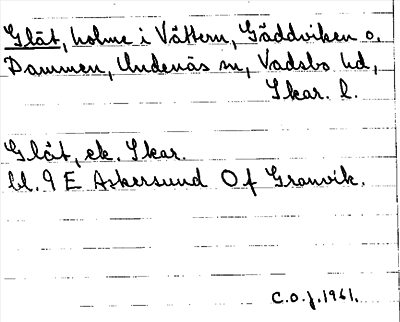 Glät, holme i Vättern, Gäddviken o.
Dammen, Undenäs sn, Vadsbo hd,
Skar. l.
Glät, ek. Skar.
bl. 9 E Askersund Of Granvik.
C.O.J. 1961.